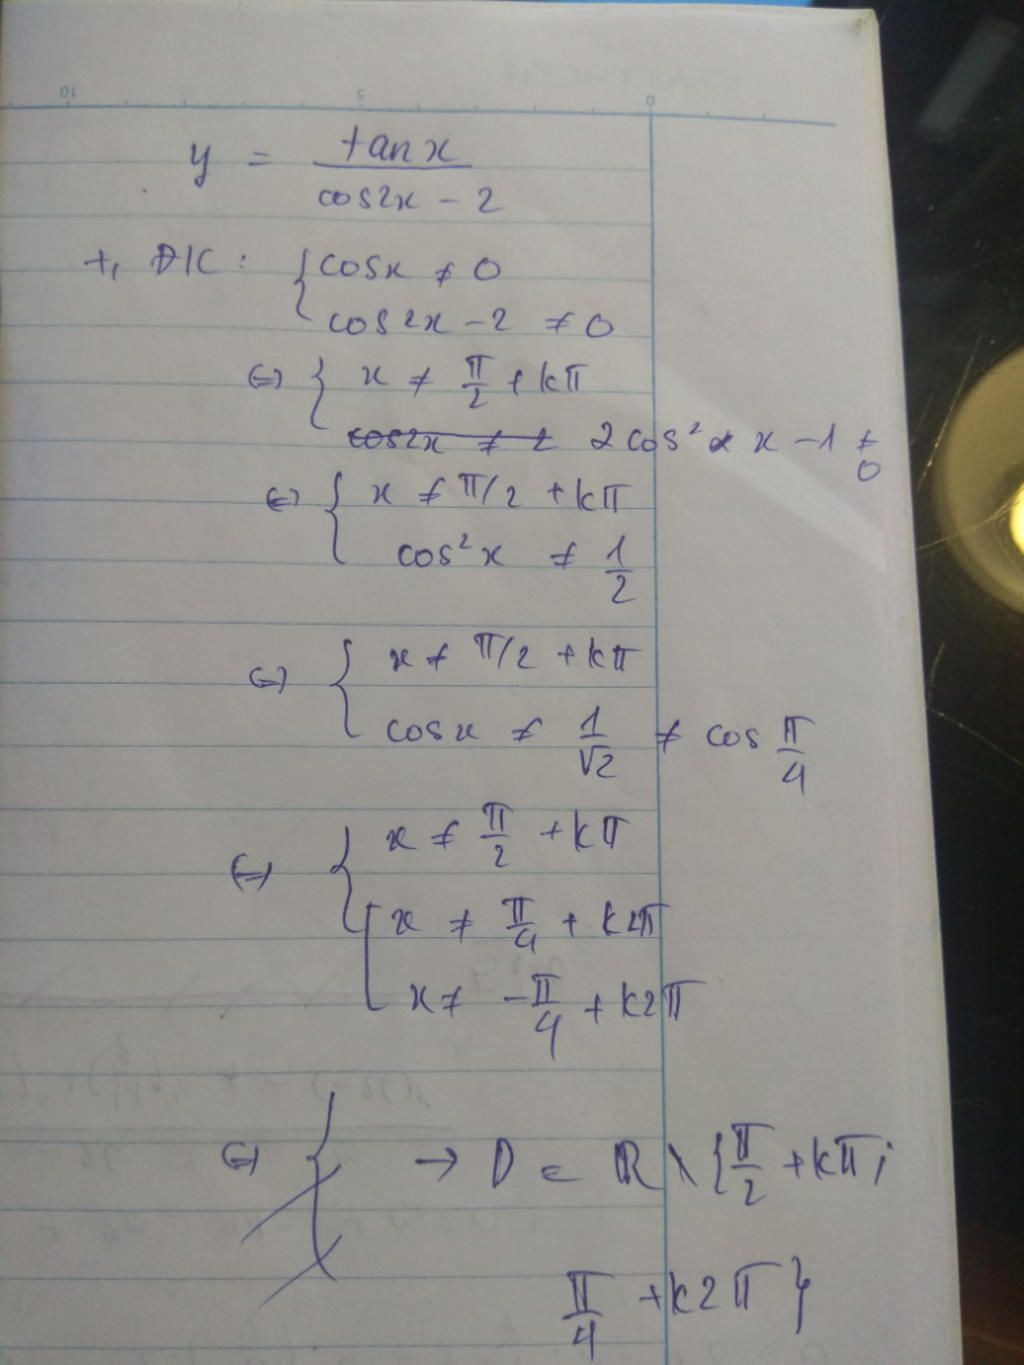 10 5 0
y = tan x / cos2x - 2
+, ĐK: { cosx ≠ 0
cos2x - 2 ≠ 0
(=) { x ≠ π/2 + kπ
cos2x ≠ 2 2cos² x - 1 ≠ 0
(=) { x ≠ π/2 + kπ
cos²x ≠ 1/2
(=) { x ≠ π/2 + kπ
cosx ≠ 1/√2 ≠ cos π/4
(=) { x ≠ π/2 + kπ
[ x ≠ π/4 + k2π
x ≠ -π/4 + k2π
(=) { → D = R \ { π/2 + kπ;
π/4 + k2π }